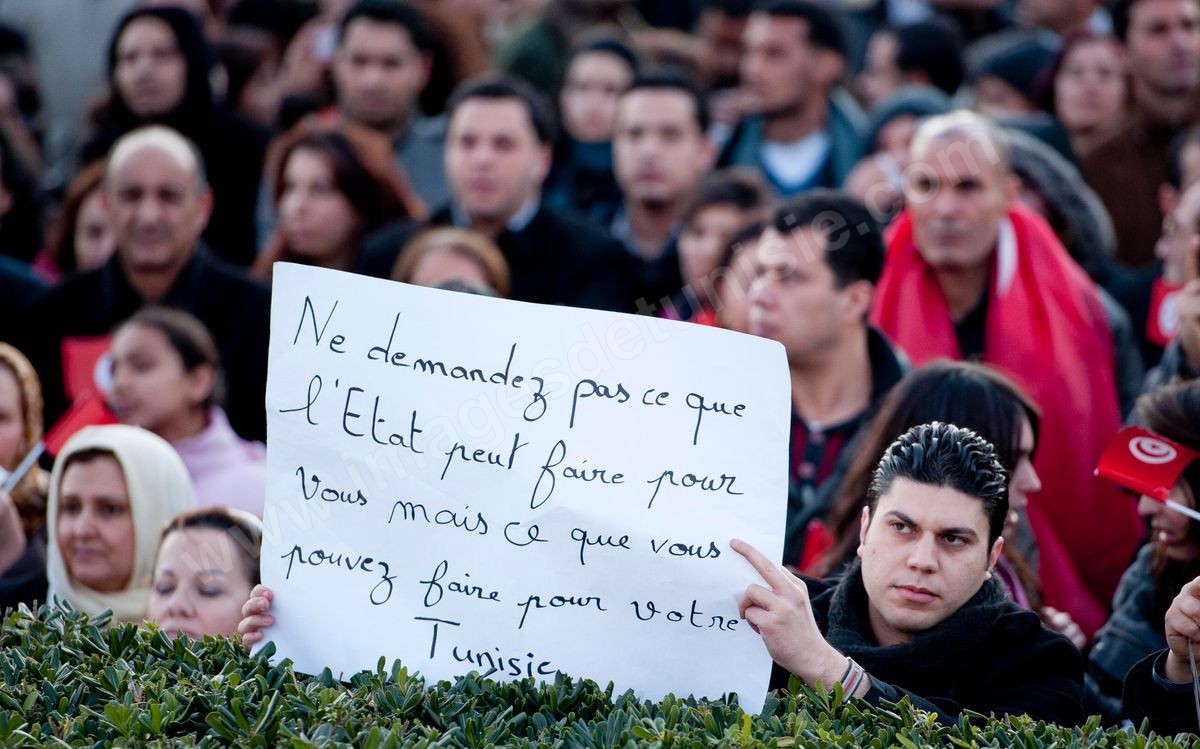 Ne demandez pas ce que
l'Etat peut faire pour
Vous mais ce que vous
pouvez faire pour votre
Tunisie
www.imagesdetunisie.com